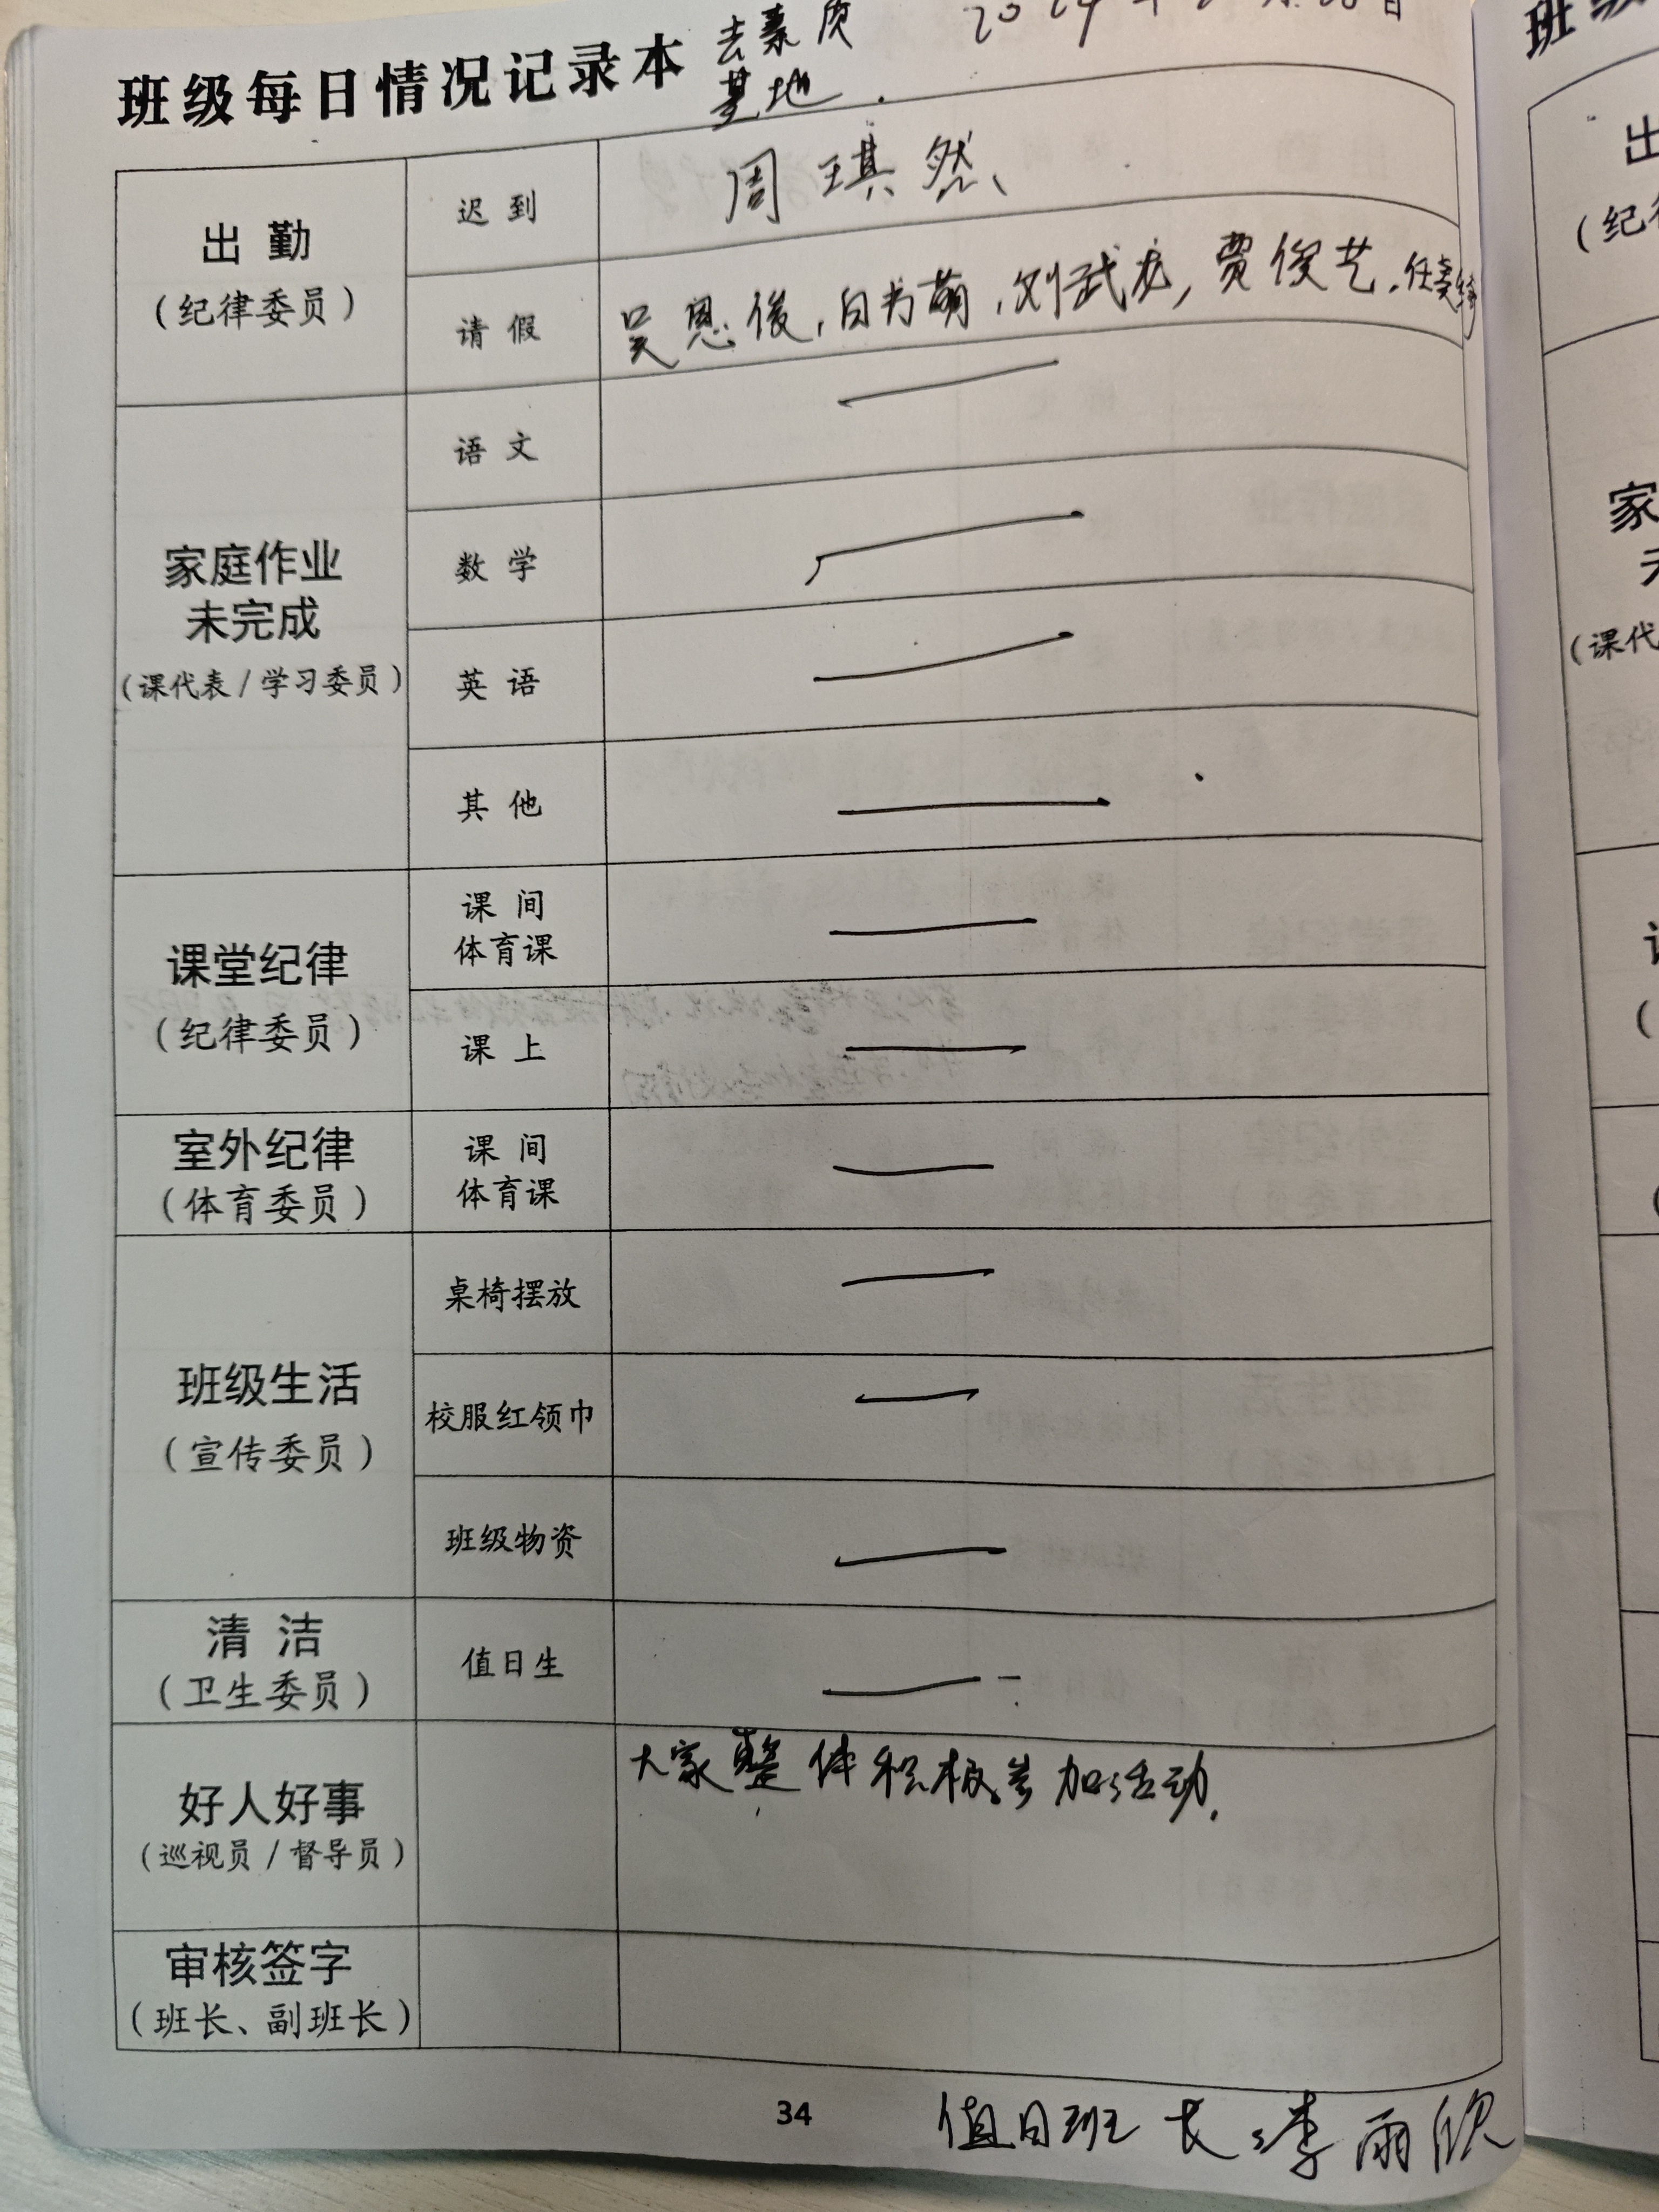 班级每日情况记录本 去素质
基地.
出勤
(纪律委员)
迟到
周琪然、
请假
吴恩俊,白书萌,刘武龙,贾俊艺.
家庭作业
未完成
(课代表/学习委员)
语文
数学
英语
其他
课堂纪律
(纪律委员)
课间
体育课
课上
室外纪律
(体育委员)
课间
体育课
班级生活
(宣传委员)
桌椅摆放
校服红领巾
班级物资
清洁
(卫生委员)
值日生
好人好事
(巡视员/督导员)
大家整体积极参加活动.
审核签字
(班长、副班长)
34
值日班长:李雨欣